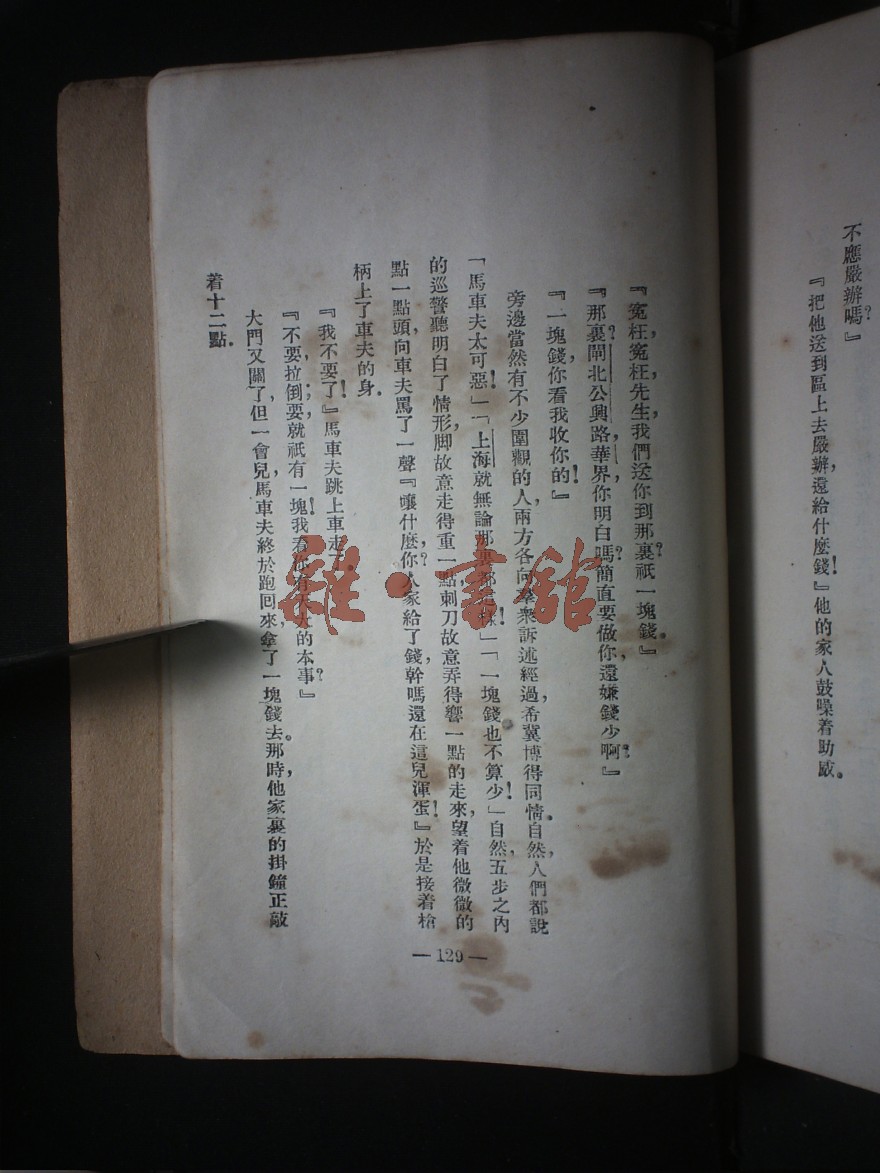 不應嚴辦嗎？』
『把他送到區上去嚴辦，還給什麼錢！』他的家人鼓噪着助威。
『冤枉，冤枉，先生，我們送你到那裏？祇一塊錢。』
『那裏？閘北公興路，華界，你明白嗎？簡直要做你，還嫌錢少啊？』
『一塊錢，你看我收你的！』
旁邊當然有不少圍觀的人，兩方各向羣衆訴述經過，希冀博得同情。自然，人們都說
「馬車夫太可惡！」「上海就無論那裏都這樣！」「一塊錢也不算少！」自然，五步之內
的巡警聽明白了情形，脚故意走得重一點，刺刀故意弄得響一點的走來，望着他微微的
點一點頭，向車夫罵了一聲『嚷什麼，你？人家給了錢，幹嗎還在這兒渾蛋！』於是接着槍
柄上了車夫的身。
『我不要了！』馬車夫跳上車走了。
『不要，拉倒；要，就祇有一塊！我看你有天大的本事？』
大門又關了，但一會兒，馬車夫終於跑回來，拿了一塊錢去。那時，他家裏的掛鐘正敲
着十二點。
—129—
雜·書館